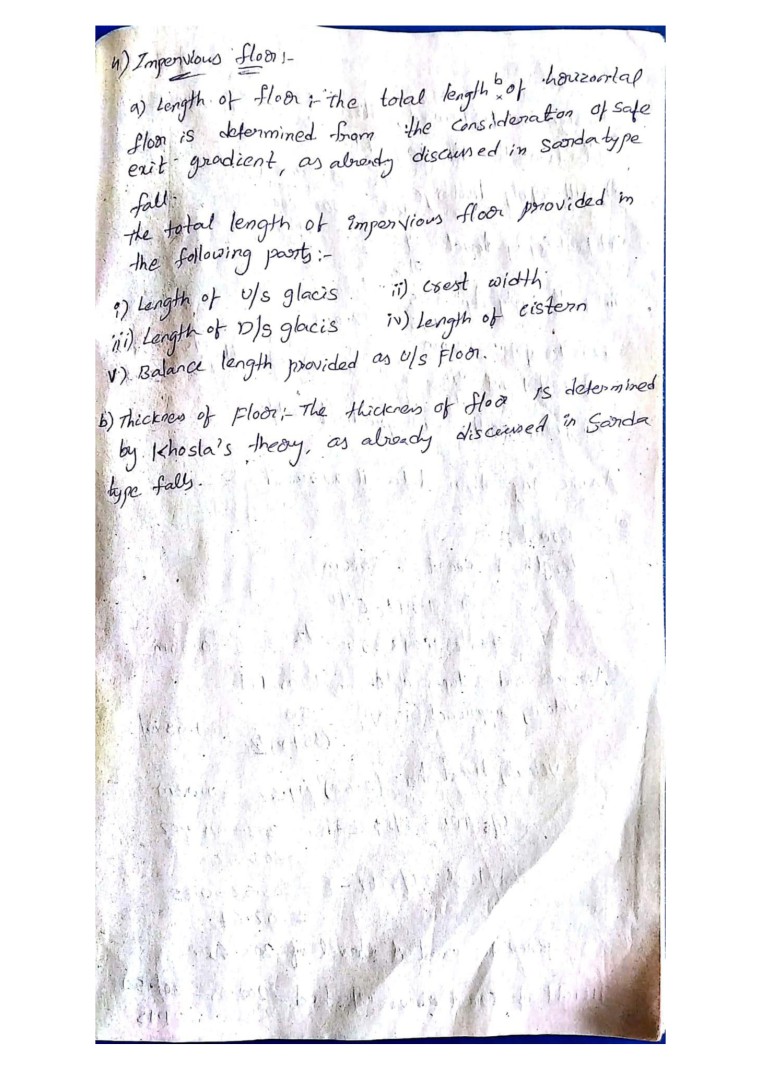 4) Impervious floor :-
a) Length of floor :- the total length b of horizontal
floor is determined from the consideration of safe
exit gradient, as already discussed in Sarda type
fall.
the total length of impervious floor provided in
the following parts :-
i) Length of U/s glacis ii) crest width
iii) Length of D/s glacis iv) Length of cistern
v) Balance length provided as U/s Floor.
b) Thickness of Floor :- The thickness of floor is determined
by Khosla's theory, as already discussed in Sarda
type falls.